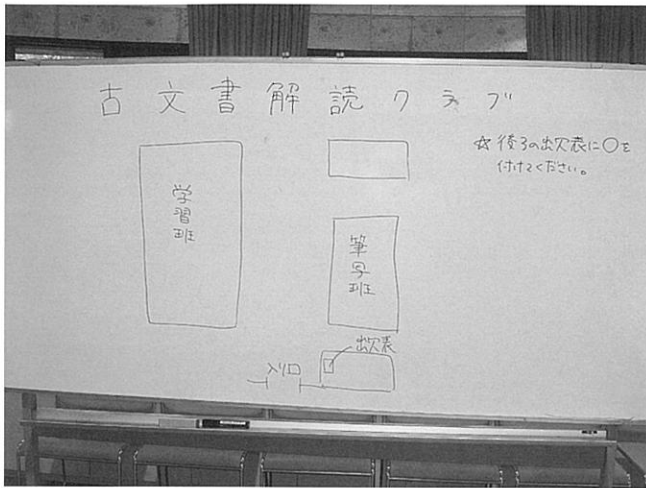 古文書解読クラブ
☆後ろの出欠表に○を
付けてください。
学習班
筆写班
出欠表
入り口